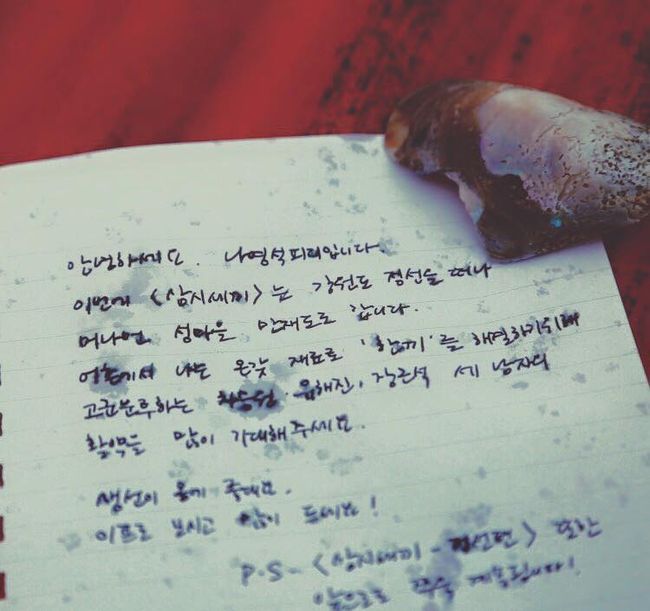 안녕하세요. 나영석피디입니다.
이번에 <삼시세끼>는 강원도 정선을 떠나
머나먼 섬마을 만재도로 갑니다.
어촌에서 나는 온갖 재료로 '한끼'를 해결하기위해
고군분투하는 차승원. 유해진, 장근석 세 남자의
활약을 많이 기대해주세요.
생선이 몸에 좋대요.
이프로 보시고 많이 드세요!
P.S - <삼시세끼 - 정선편> 또한
앞으로 계속됩니다!